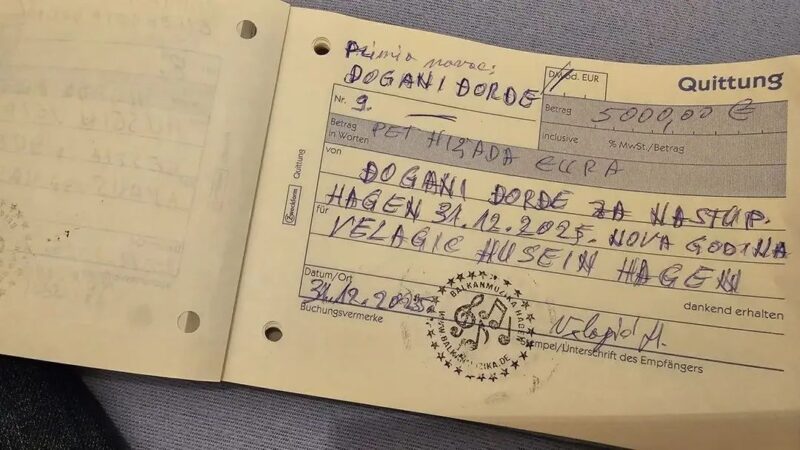 Primio novac:
DOGANI DORDE
DM/od. EUR
Quittung
Nr. 9.
Betrag 5000,00 €
inclusive % MwSt./Betrag
Betrag in Worten PET HIŁADA EURA
von DOGANI DORDE ZA NASTUP.
HAGEN 31.12.2025. NOVA GODINA
für VELAGIC HUSEIN HAGEN
dankend erhalten
Datum/Ort
31.12.2025
Buchungsvermerke
Velagić H.
Stempel/Unterschrift des Empfängers
BALKANMUZIKA HAGEN
WWW.BALKANMUZIKA.DE
Zweckform
Quittung